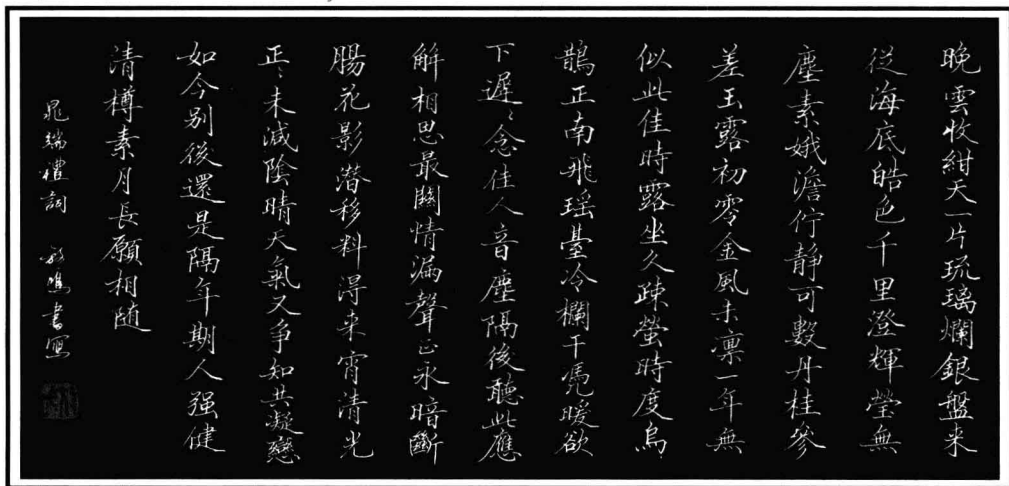 晚雲收紺天一片琉璃爛銀盤来
從海底皓色千里澄輝瑩無
塵素娥澹佇静可數丹桂參
差玉露初零金風未凛一年無
似此佳時露坐久疎螢時度烏
鵲正南飛瑶臺冷欄干凴暖欲
下遲〻念佳人音塵隔後聽此應
解相思最關情漏聲正永暗斷
腸花影潜移料得来宵清光
正〻未减陰晴天氣又争知共凝戀
如今别後還是隔年期人强健
清樽素月長願相随
晁端禮詞 鳴書寫